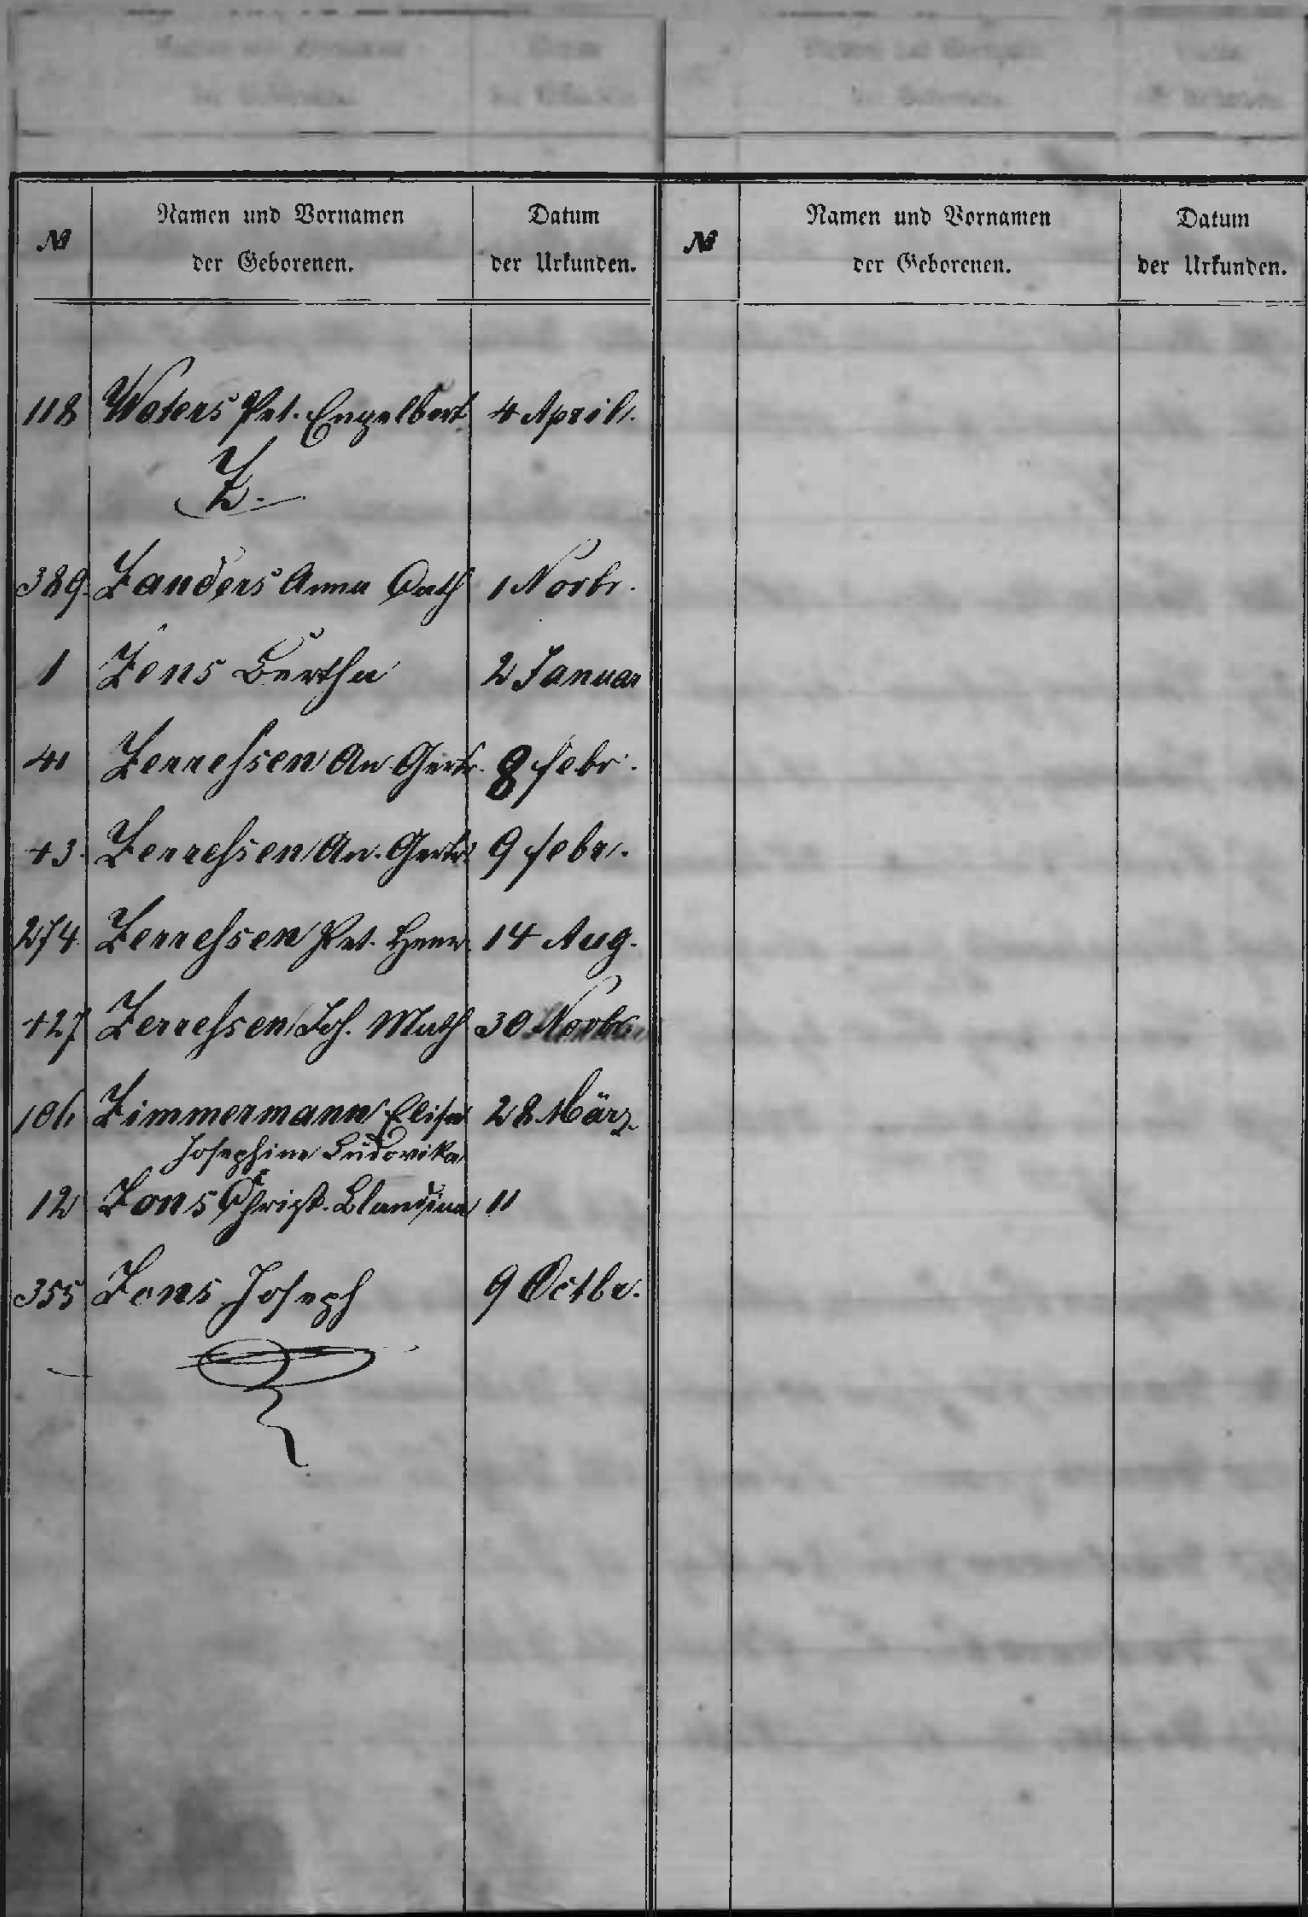 № Namen und Vornamen der Geborenen. Datum der Urkunden. № Namen und Vornamen der Geborenen. Datum der Urkunden.
118 Wolters Pet. Engelbert 4 April.
Z.
389. Zanders Anna Cath 1 Novbr.
1 Zens Bertha 2 Januar
41 Zerressen An. Gertr. 8 Febr.
43. Zerressen An. Gertr. 9 Febr.
274. Zerressen Pet. Henr. 14 Aug.
427 Zerressen Joh. Math 30 Novbr
106 Zimmermann Elisa 28 März
Josephine Ludovika
12 Zons Christ. Blandina 11
355 Zons Joseph 9 Octbr.